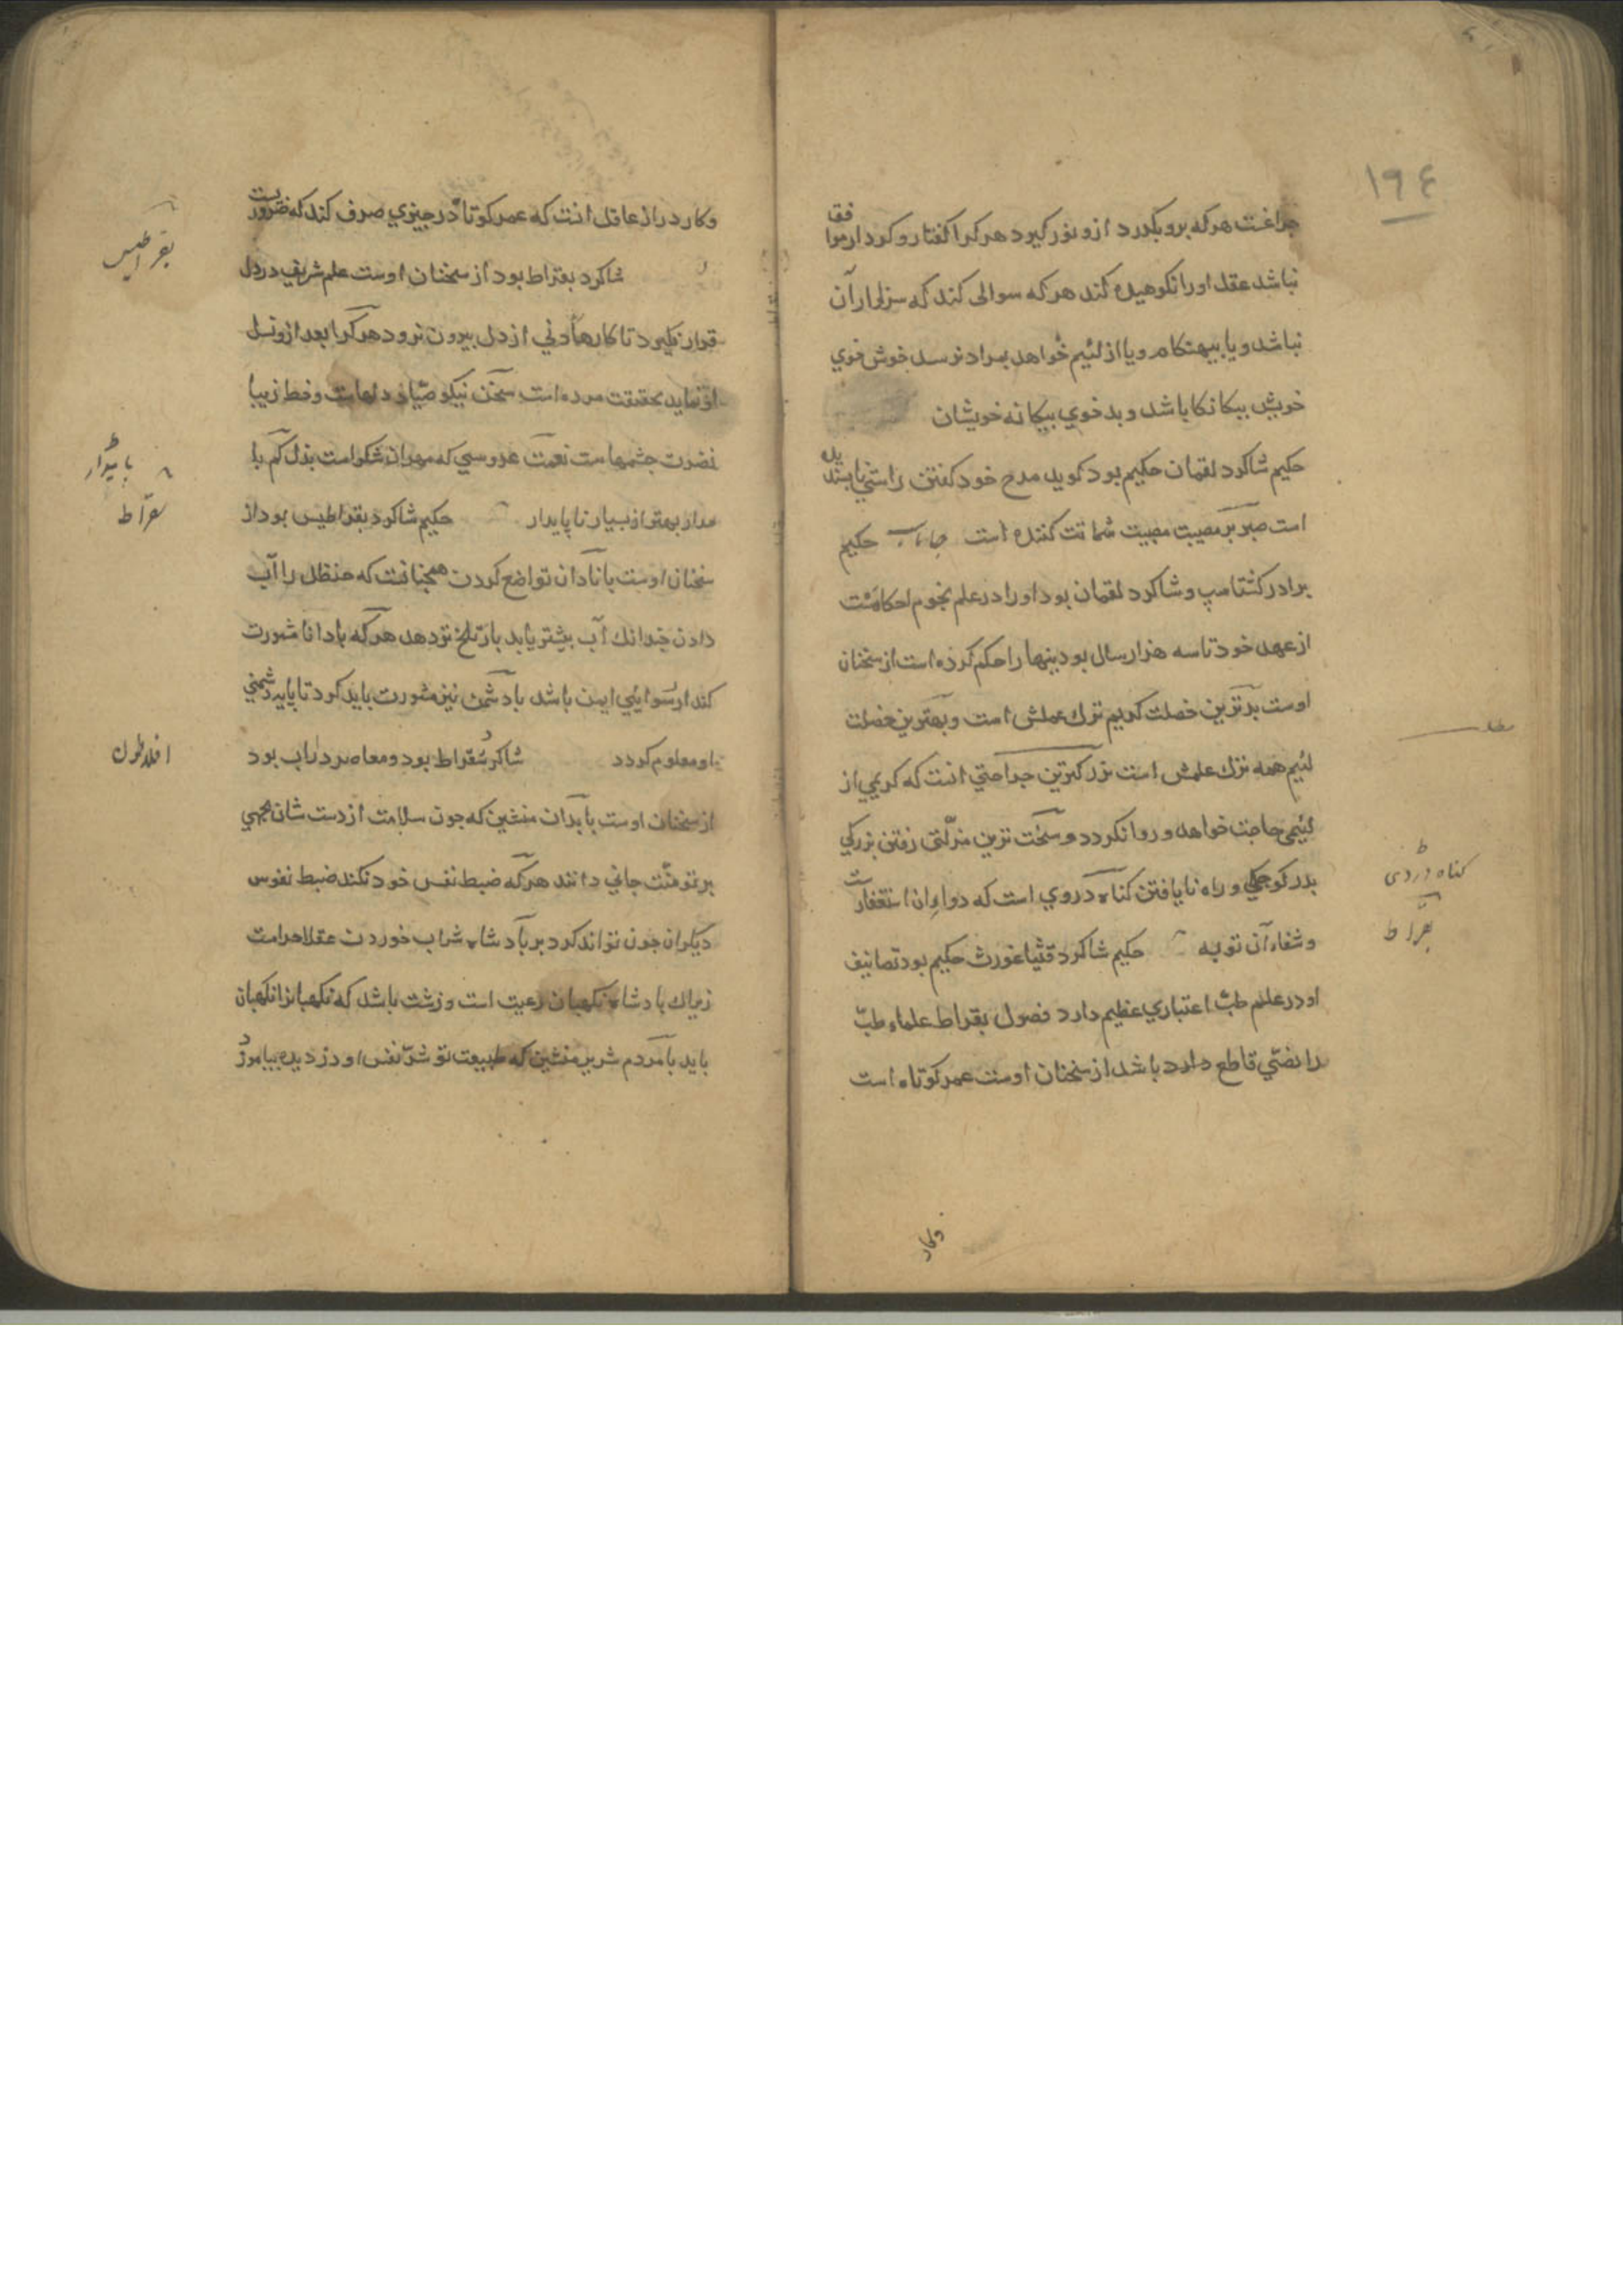 ١٩٤
جراغست هرکه برو بکدرد ازو نور کیرد هرکرا کفتار و کردار موافق
نباشد عقل اورا نکوهیده کند هرکه سوالی کند که سزاوار آن
نباشد ویا بیهنکام ویا از لئیم خواهد بمراد نرسد خوش خوي
خویش بیکانکا باشد و بدخوي بیکانه خویشان
حکیم شاکرد لقمان حکیم بود کوید مدح خود کفتن راستي ناپسندیده
است صبر بر مصیبت مصیبت شماتت کننده است حکیم
برادر کشتاسپ و شاکرد لقمان بود اورا در علم نجوم احکامست
از عهد خود تا سه هزار سال بودینها را حکم کرده است از سخنان
اوست بدترین خصلت کریم ترك عملش است و بهترین خصلت
لئیم همه ترك علمش است بزرکترین جراحتي انست که کریمي از
لئیمی حاجت خواهد و روا نکردد و سخت ترین منزلتی رفتن بزرکي
بدر کوجکي و راه نا یافتن کناه دردي است که دواء ان استغفارست
و شفاء آن توبه حکیم شاکرد قثیاغورث حکیم بود تصانیف
او در علم طبّ اعتباري عظیم دارد فصول بقراط علماء طبّ
را نصّي قاطع دارد باشد از سخنان اوست عمر کوتاه است
مطلب
کناه دردی
بقراط
وکار
وکار دراز عاقل انست که عمر کوتا در جیزي صرف کند که ضروریست
شاکرد بقراط بود از سخنان اوست علم شریف در دل
قرار نکیرد تا کارهاء دني از دل بیرون نرود هرکرا بعد ازو نسل
او نماید بحقیقت مرده است سخن نیکو صیّاد دلهاست و خط زیبا
نضرت جشمهاست نعمت عروسي که مهر ان شکر است بذل کم با
مدار بهتر از بسیار نا پایدار حکیم شاکرد بقراطیس بود از
سخنان اوست با نادان تواضع کردن همجنانست که حنظل را آب
دادن جندانك آب بیشتر یابد بار تلخ تر دهد هرکه با دانا مشورت
کند از رسوایئي ایمن باشد با دشمن نیز مشورت باید کرد تا پایه دشمني
او معلوم کردد شاکرد سقراط بود و معاصر داراب بود
از سخنان اوست با بدان منشین که جون سلامت از دست شان بجهي
بر تو منّت جاني دانند هرکه ضبط نفس خود نکند ضبط نفوس
دیکران جون تواند کرد بر پادشاه شراب خوردن عقلا حرامست
زیراك پادشاه نکهبان رعیت است و زشت باشد که نکهبانرا نکهبان
باید با مردم شریر منشین که طبیعت تو شرّ نفس او دزدیده بیاموزد
بقراطیس
پایدار
سقراط
افلاطون